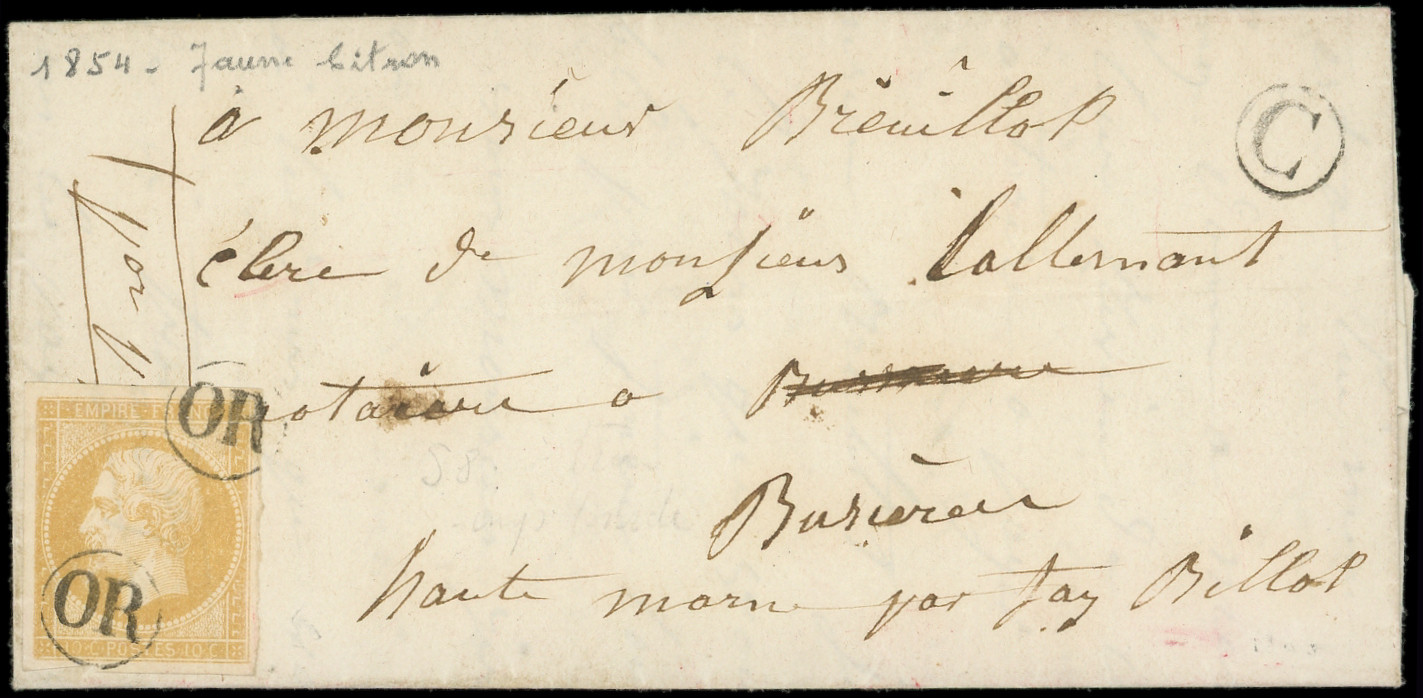 1854 - Jaune Citron
à monsieur Breuillot
C
clerc de monsieur Lallemant
notaire a
Busierei
haute marne par fay Billot
OR
EMPIRE FRANC
OR
10 C POSTES 10 C
58